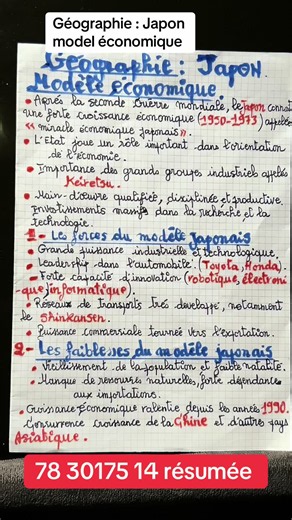 Géographie : Japon
model économique
Géographie : Japon.
Modèle économique.
• Après la seconde Guerre mondiale, le Japon connait
Une forte croissance économique (1950-1973) appelée
« miracle économique japonais ».
• L'Etat joue un rôle important dans l'orientation
de l'économie.
• Importance des grands groupes industriels appelés
Keiretsu.
• Main-d'œuvre qualifiée, disciplinée et productive.
Investissements massifs dans la recherche et la
technologie.
1- Les forces du modèle japonais
• Grande puissance industrielle et technologique,
• Leadership dans l'automobile. (Toyota, Honda).
• Forte capacité d'innovation (robotique, électroni
que, informatique).
• Réseaux de transports très développé, notamment
le Shinkansen.
• Puissance commerciale tournée vers l'exportation.
2- Les faiblesses du modèle japonais
• Vieillissement de la population et faible natalité.
• Manque de ressources naturelles, forte dépendance
aux importations.
• Croissance économique ralentie depuis les années 1990.
Concurrence croissante de la Chine et d'autres pays
Asiatique.
78 30175 14 résumée